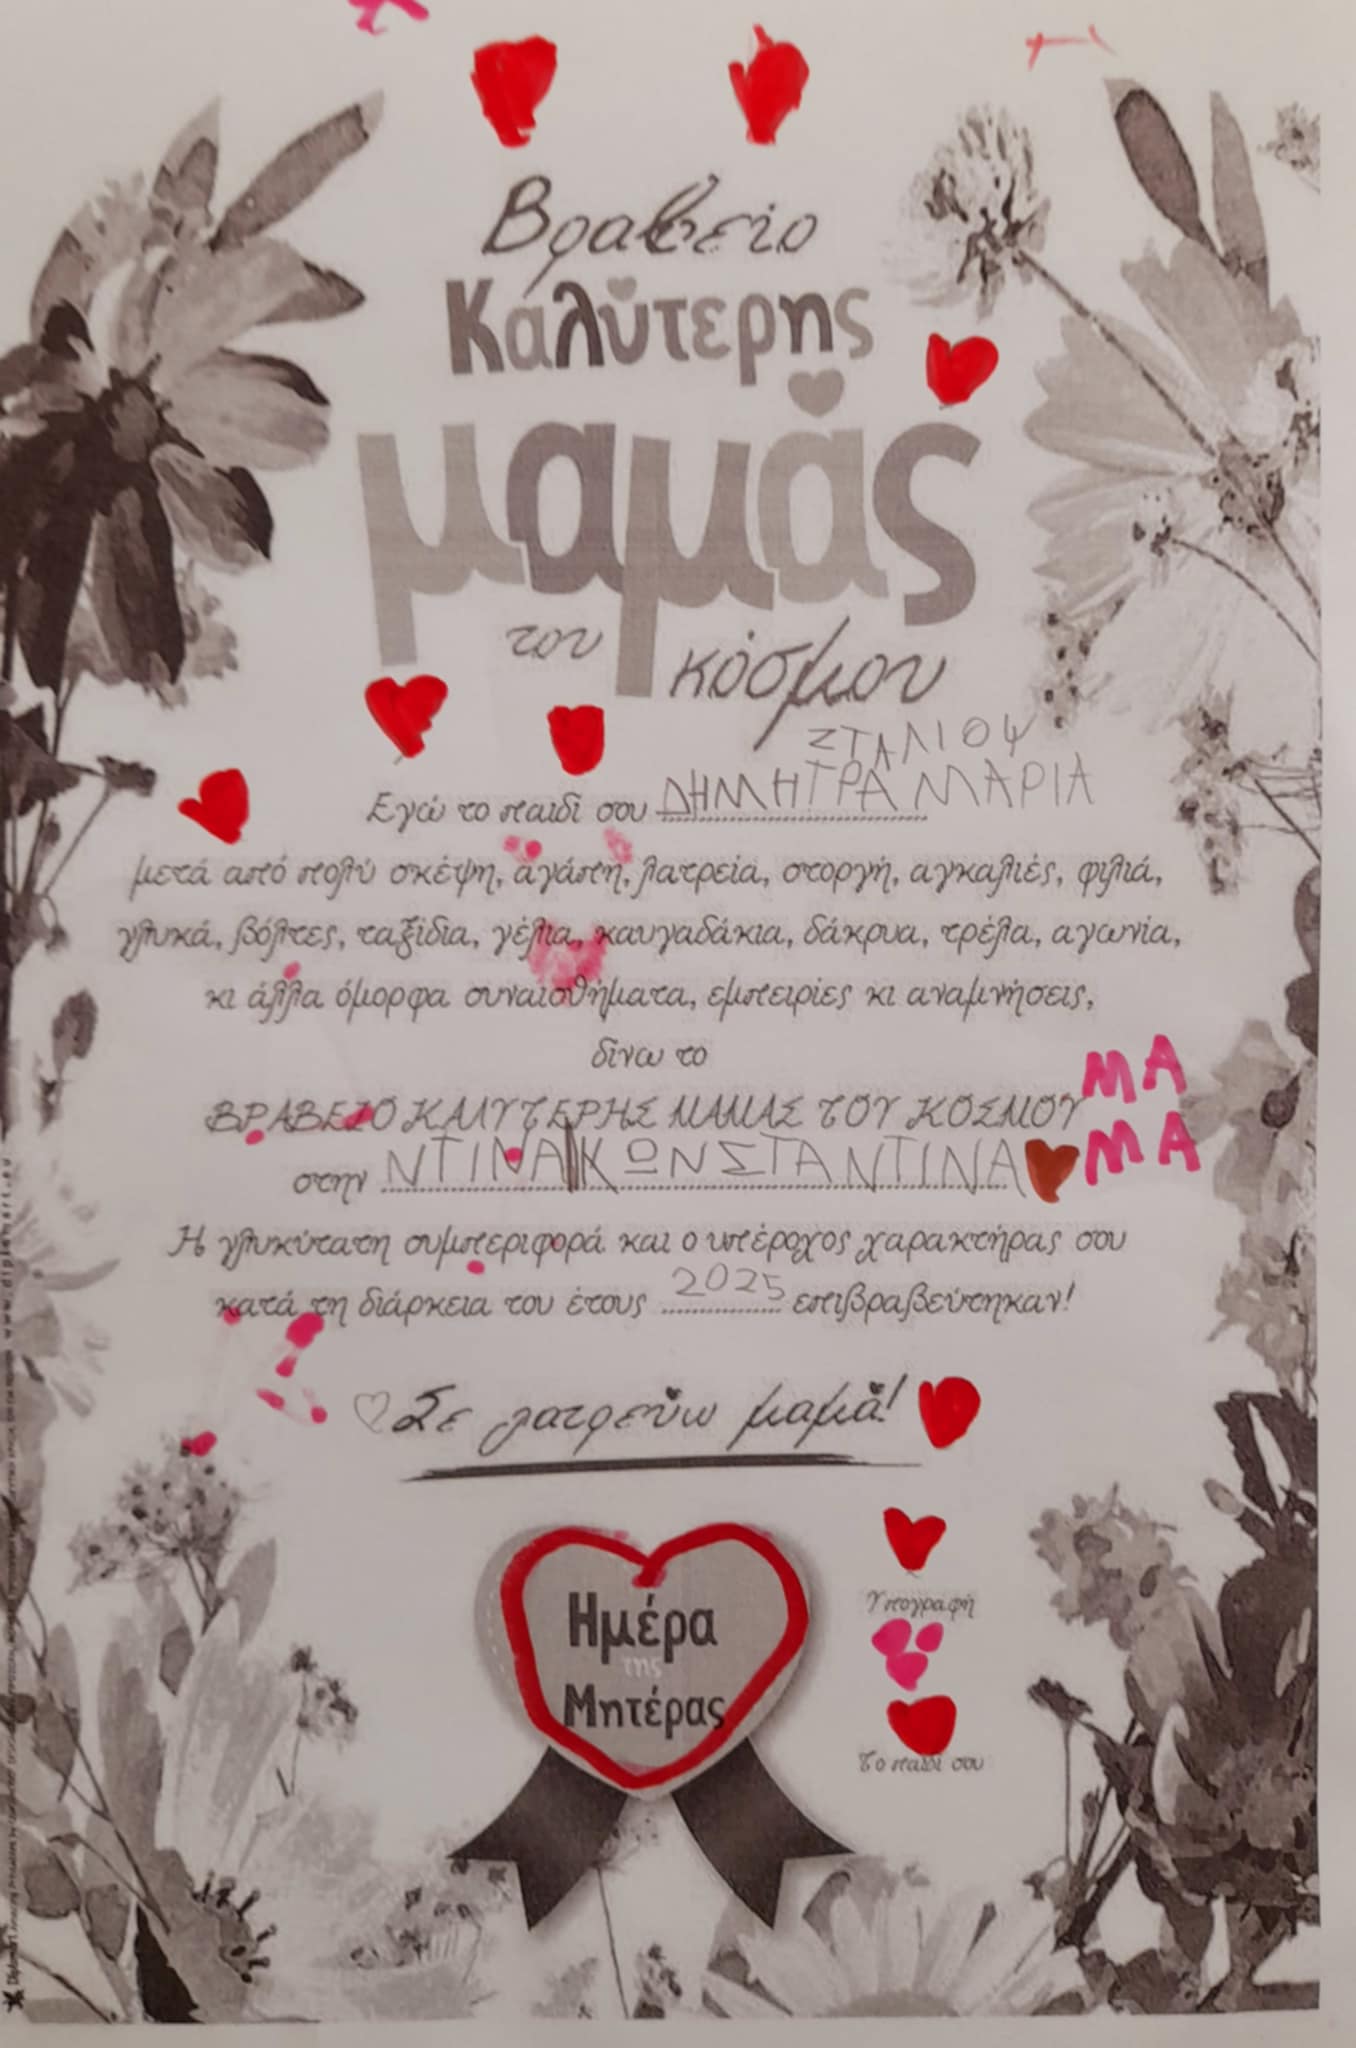 Βραβείο
Καλύτερης
μαμάς
του κόσμου
ΣΤΑΛΙΟΨ
Εγώ το παιδί σου ΔΗΜΗΤΡΑ ΜΑΡΙΑ
μετά από πολύ σκέψη, αγάπη, λατρεία, στοργή, αγκαλιές, φιλιά,
γλυκά, βόλτες, ταξίδια, γέλια, καυγαδάκια, δάκρυα, τρέλα, αγωνία,
κι άλλα όμορφα συναισθήματα, εμπειρίες κι αναμνήσεις,
δίνω το
ΒΡΑΒΕΙΟ ΚΑΛΥΤΕΡΗΣ ΜΑΜΑΣ ΤΟΥ ΚΟΣΜΟΥ ΜΑ
στην ΝΤΙΝΑ ΚΩΝΣΤΑΝΤΙΝΑ ΜΑ
Η γλυκύτατη συμπεριφορά και ο υπέροχος χαρακτήρας σου
κατά τη διάρκεια του έτους 2025 επιβραβεύτηκαν!
Σε λατρεύω μαμά!
Ημέρα
της
Μητέρας
Υπογραφή
Το παιδί σου
www.diplomart.eu